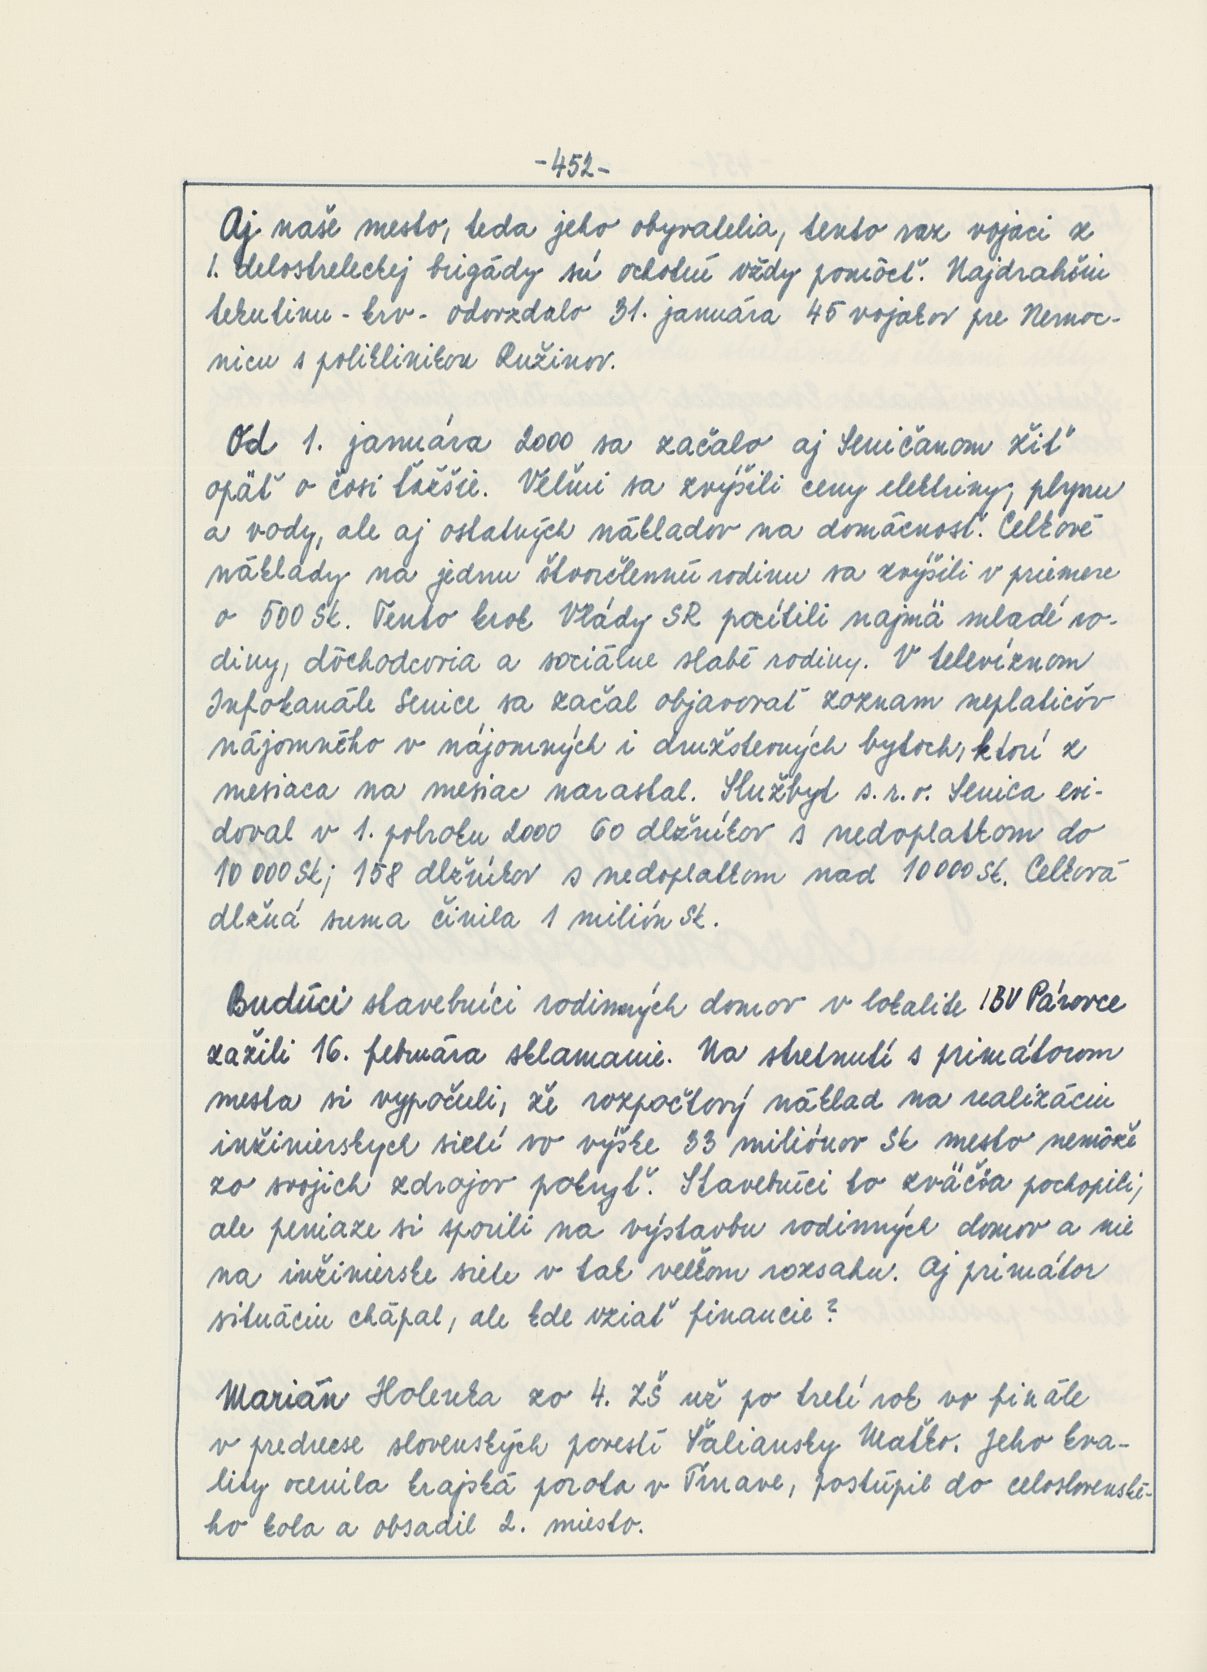 -452-
Aj naše mesto, teda jeho obyvatelia, tento raz vojaci z
1. delostreleckej brigády sú ochotní vždy pomôcť. Najdrahšiu
tekutinu - krv - odovzdalo 31. januára 45 vojakov pre Nemoc-
nicu s poliklinikou Ružinov.
Od 1. januára 2000 sa začalo aj Seničanom žiť
opäť o čosi ťažšie. Veľmi sa zvýšili ceny elektriny, plynu
a vody, ale aj ostatných nákladov na domácnosť. Celkové
náklady na jednu štvorčlennú rodinu sa zvýšili v priemere
o 500 Sk. Tento krok Vlády SR pocítili najmä mladé ro-
diny, dôchodcovia a sociálne slabé rodiny. V televíznom
Infokanále Senice sa začal objavovať zoznam neplatičov
nájomného v nájomných i družstevných bytoch, ktorí z
mesiaca na mesiac narastal. Službyt s.r.o. Senica evi-
doval v 1. polroku 2000 60 dlžníkov s nedoplatkom do
10 000 Sk; 158 dlžníkov s nedoplatkom nad 10 000 Sk. Celková
dlžná suma činila 1 milión Sk.
Budúci stavebníci rodinných domov v lokalite IBV Párovce
zažili 16. februára sklamanie. Na stretnutí s primátorom
mesta si vypočuli, že rozpočtový náklad na realizáciu
inžinierskych sietí vo výške 33 miliónov Sk mesto nemôže
zo svojich zdrojov pokryť. Stavebníci to zväčša pochopili,
ale peniaze si sporili na výstavbu rodinných domov a nie
na inžinierske siete v tak veľkom rozsahu. Aj primátor
situáciu chápal, ale kde vziať financie?
Marián Holenka zo 4. ZŠ už po tretí rok vo finále
v prednese slovenských povestí Šaliansky Maťko. Jeho kva-
lity ocenila krajská porota v Trnave, postúpil do celoslovenské-
ho kola a obsadil 2. miesto.